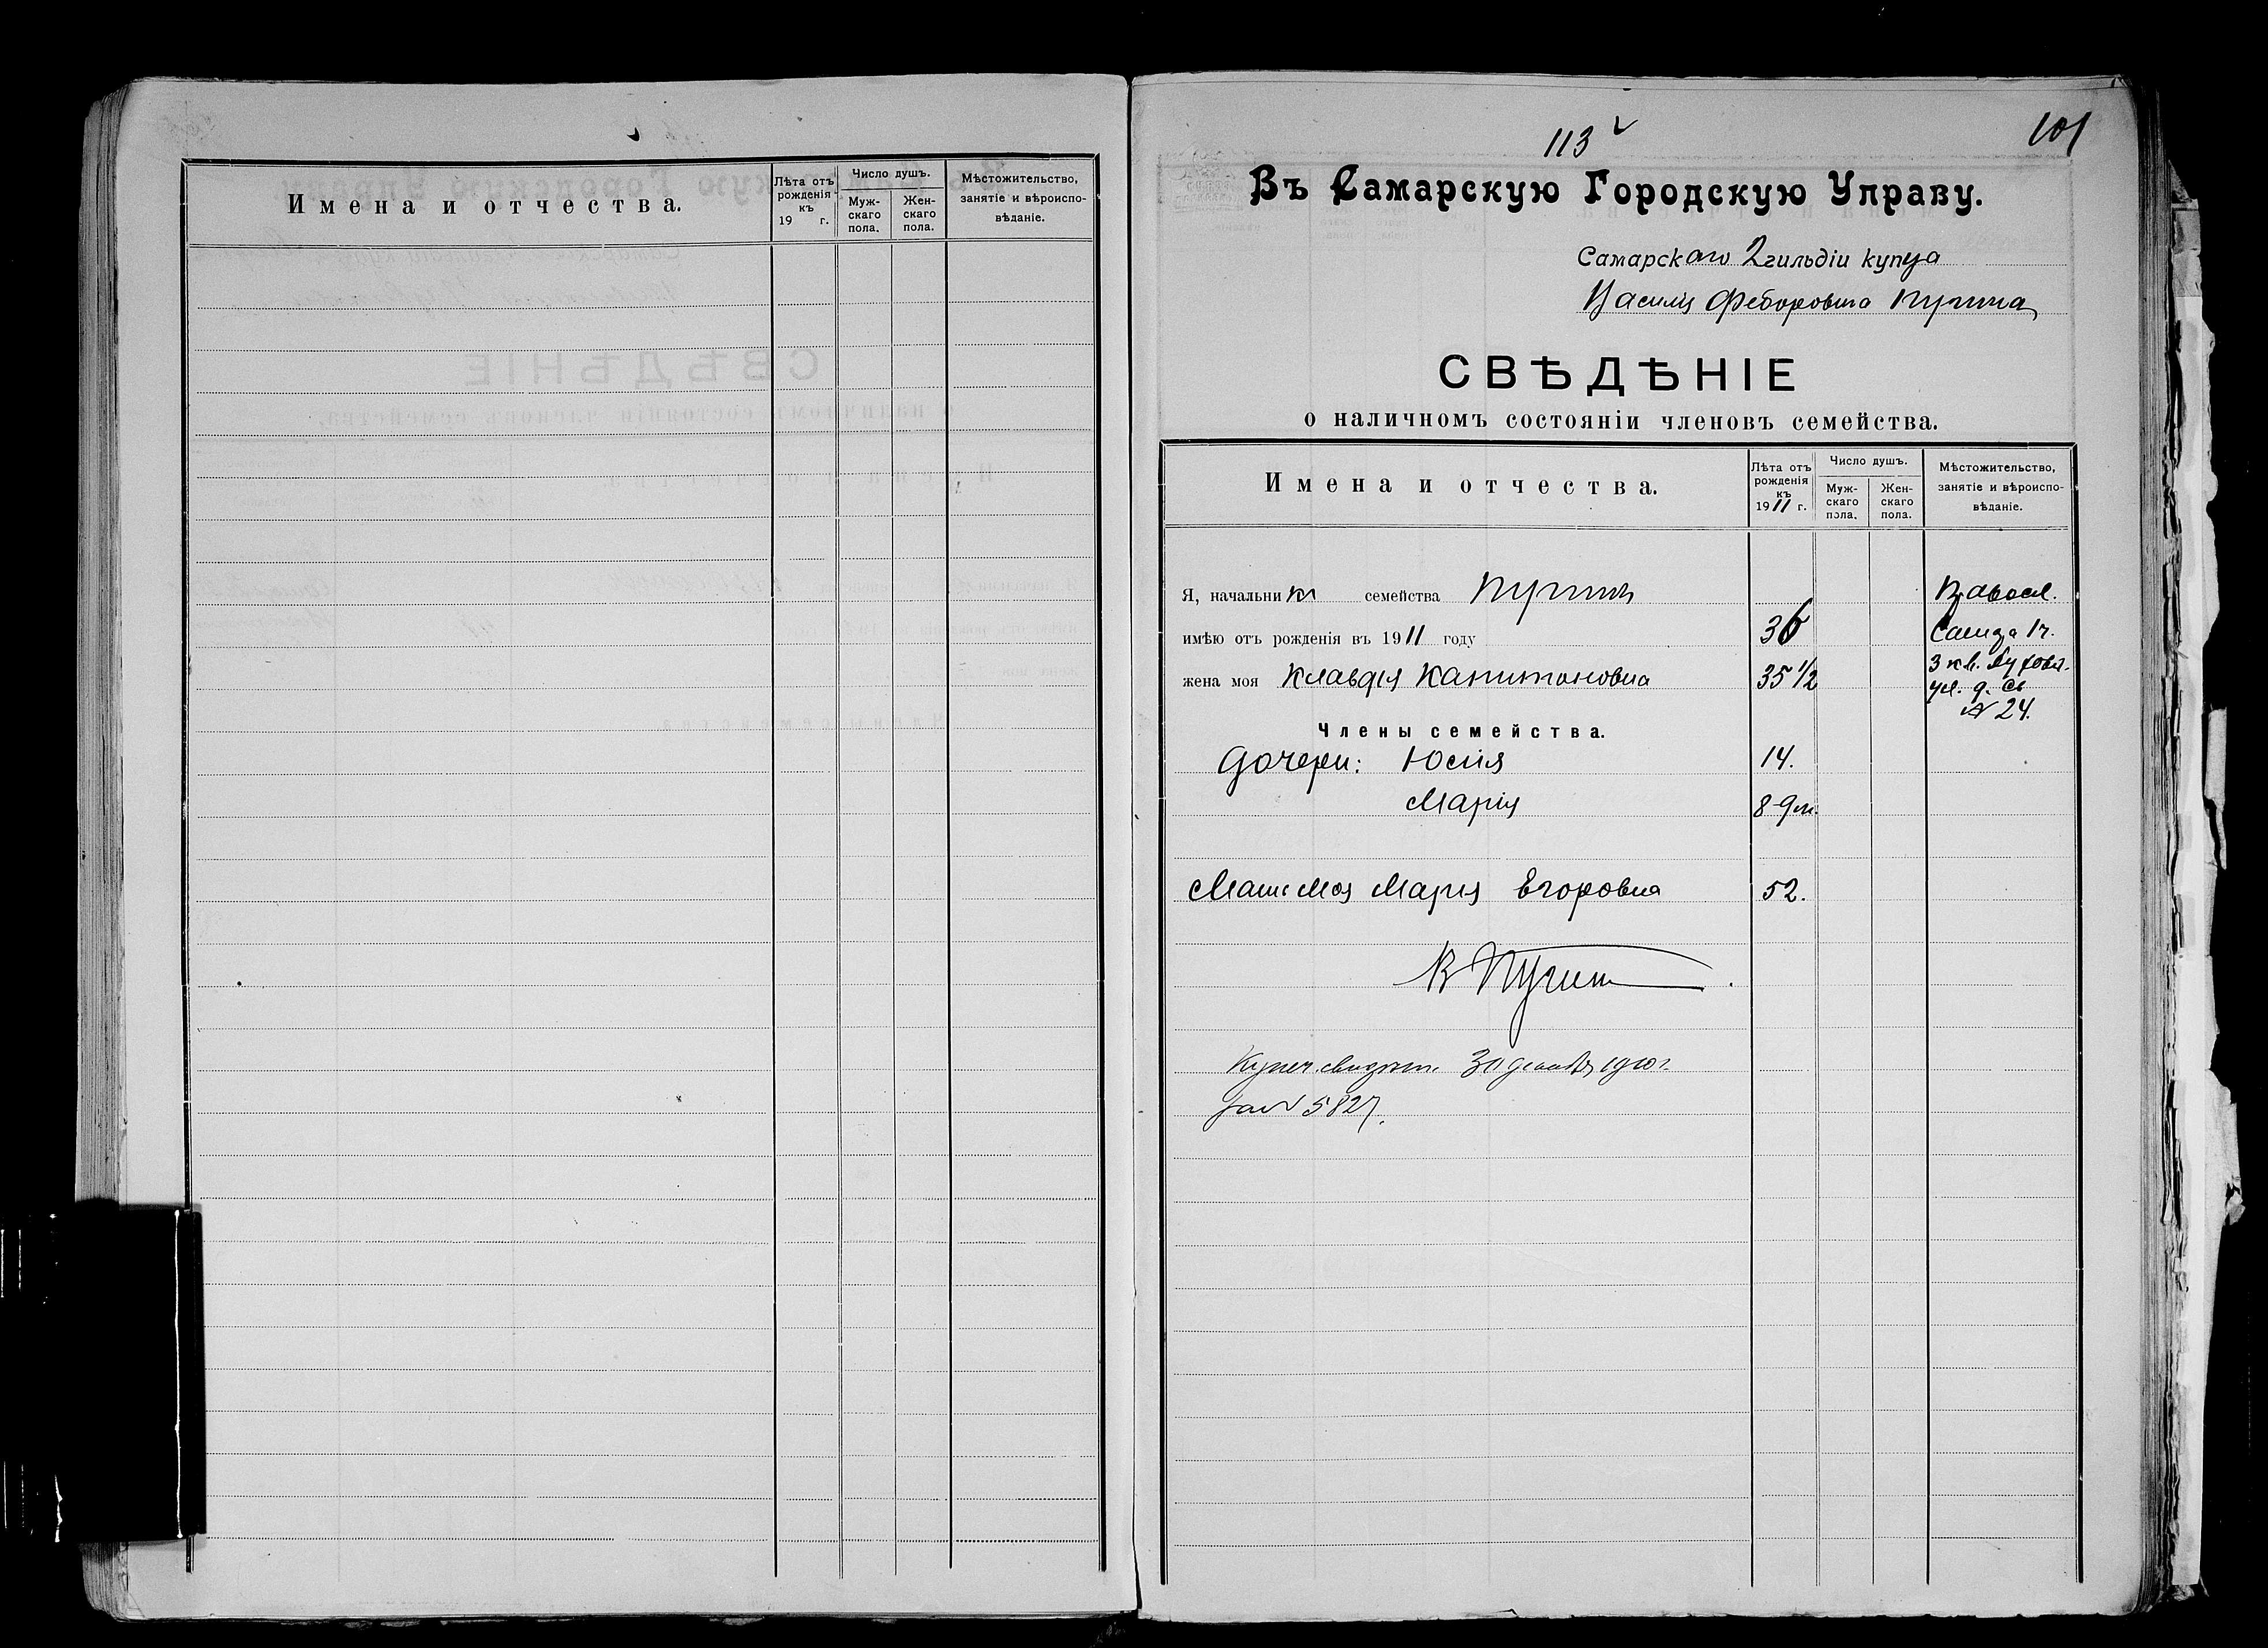 Имена и отчества.
Лѣта отъ рожденія къ 19 г.
Число душъ.
Муж-скаго пола.
Жен-скаго пола.
Мѣстожительство, занятіе и вѣроиспо-вѣданіе.
113
101
Въ Самарскую Городскую Управу.
Самарскаго 2 гильдіи купца
Василія Федоровича
СВѢДѢНІЕ
о наличномъ состояніи членовъ семейства.
Имена и отчества.
Лѣта отъ рожденія къ 1911 г.
Число душъ.
Муж-скаго пола.
Жен-скаго пола.
Мѣстожительство, занятіе и вѣроиспо-вѣданіе.
Я, начальникъ семейства
Правосл.
имѣю отъ рожденія въ 1911 году 36
Самара 1 ч.
жена моя Клавдія Капитоновна 35 1/2
3 кв.
ул. д.
№ 24.
Члены семейства.
Дочери: Юлія 14.
Марія 8-9 м.
Мать моя Марія Егоровна 52.
В
Купеч. свидѣт. 30 декабря 1910 г.
за № 5827.